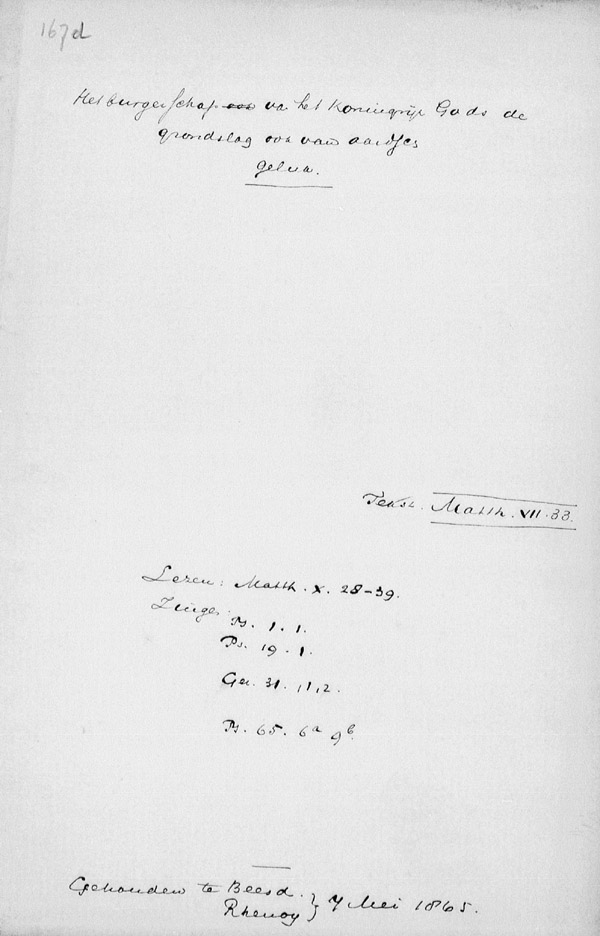 167d
Het burgerschap van het Koningrijk Gods de
grondslag ook van aardsch
geluk.
Tekst. Matth. VII. 33.
Lezen: Matth. X. 28-39.
Zingen:
Ps. 1. 1.
Ps. 19. 1.
Gez. 31. 1,2.
Ps. 65. 6a 9b.
Gehouden te Beesd. }
Rhenoy } 7 Mei 1865.